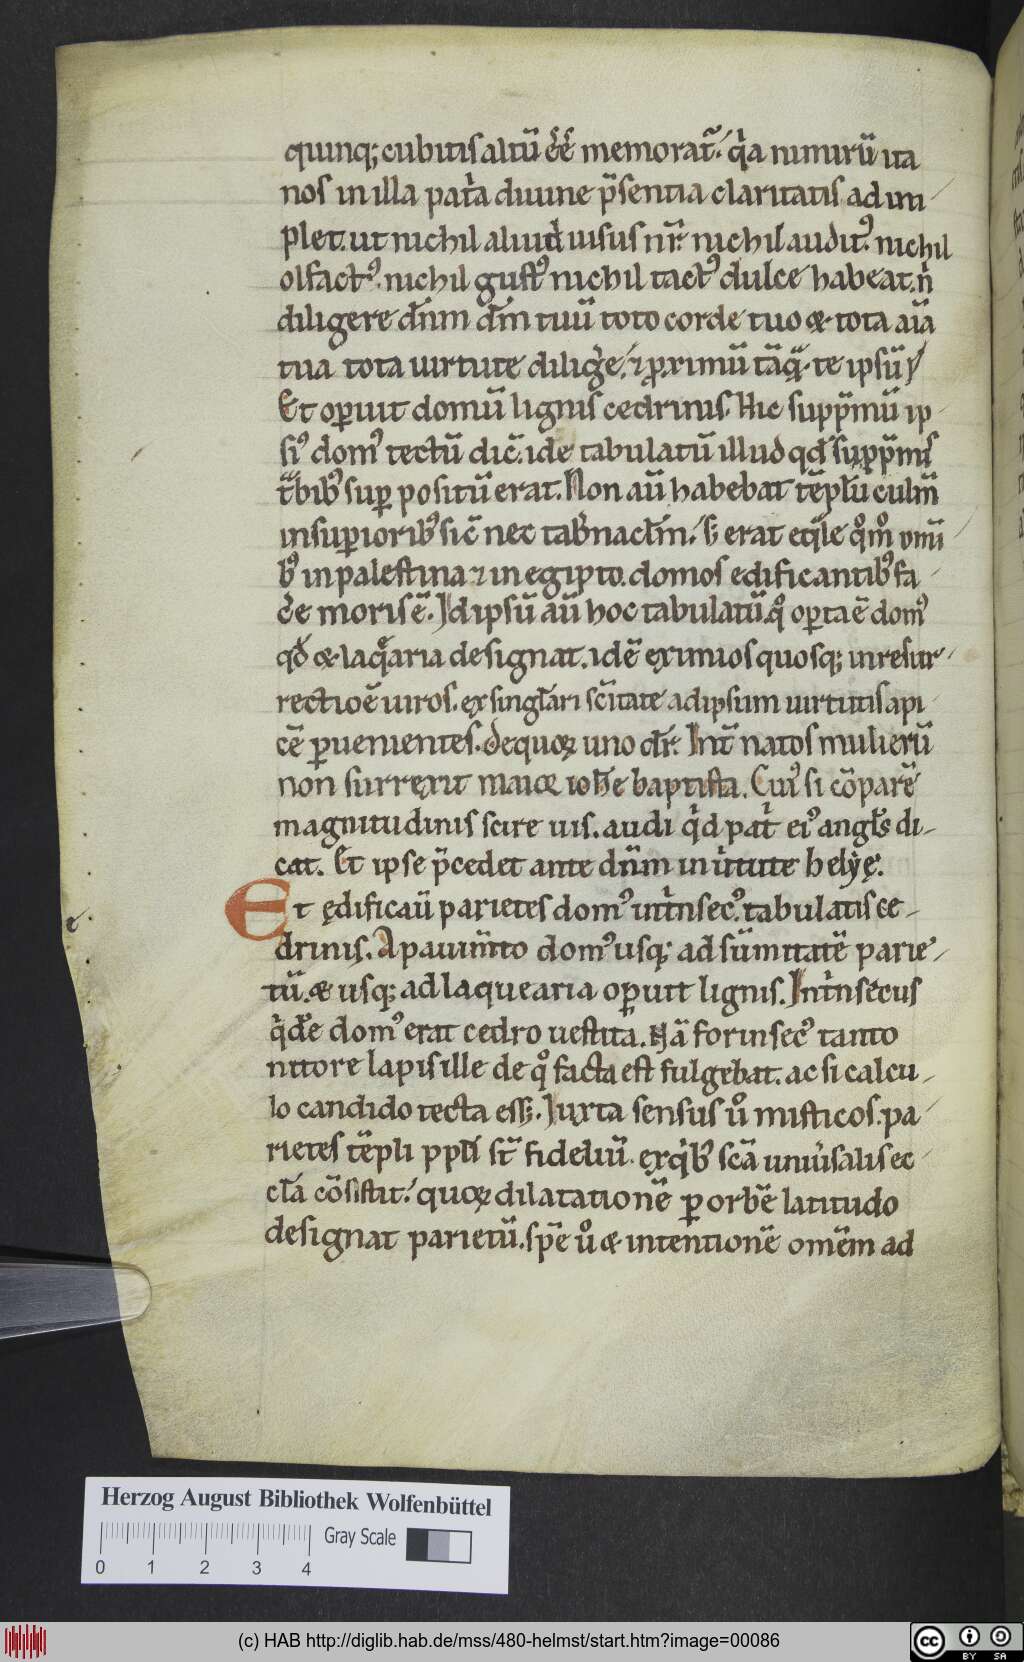 quinq; cubitis altū ēē memorat̃. qͥa nimirū ita
nos in illa pat̾a diuine p̄sentia claritatis ad im
plet. ut nichil aliud uisus nr̄. nichil auditꝰ. nichil
olfactꝰ. nichil gustꝰ nichil tactꝰ dulce habeat. nͥ
diligere dn̄m dm̄ tuū toto corde tuo & tota aīa
tua tota uirtute dilig̾e. ⁊ ꝓximū tāqᷓ. te ipsū
Et oꝑuit domū lignis cedrinis. Hic supp̄mū ip
siꝰ domꝰ tectū dic̄. id e tabulatū illud qd̄ supp̄mis
tᷓbibꝰ suꝑ positū erat. Non aū habebat tēplū culm̄
in suꝑioribꝰ sic̄ nec tab̾nac̄lm. s; erat eq̄le qͦmͦ omī
bꝰ in palestina ⁊ in egipto. domos edificantibꝰ fa
c̾e moris ē. Id ipsū aū hoc tabulatū. qͦ oꝑta ē domꝰ
qd̄ & laqᷓaria designat. idē eximios quosq; in resur
rectioē uiros. ex singl̄ari sc̄itate ad ipsum uirtutis api
cē ꝑuenientes. de quoꝝ uno dr̄. Int̄ natos mulierū
non surrexit maior ioh̄e baptista. Cuiꝰ si cōparē
magnitudinis scire uis. audi qͥd pat̾ eiꝰ angl̄s di
cat. Et ipse p̄cedet ante dn̄m in uͥtute helyę.
Et ędificaū parietes domꝰ int̾nsecꝰ. tabulatis ce
drinis. A pauim̄to domꝰ usq; ad sūmitatē parie
tū. & usq; ad laquearia oꝑuit lignis. Int̾nsecus
qͥde domꝰ erat cedro uestita. Nā forinsecꝰ tanto
nitore lapis ille de qͦ facta est fulgebat. ac si calcu
lo candido tecta ess;. Iuxta sensus uͦ misticos. pa
rietes tēpli ppl̄i st̄ fideliū. ex qͥbꝰ scā uniu̾salis ec
cl̄a cōsistit. quoꝝ dilatationē ꝑ orbē latitudo
designat parietū. spē uͦ & intentionē omēm ad
Herzog August Bibliothek Wolfenbüttel
Gray Scale
0 1 2 3 4
(c) HAB http://diglib.hab.de/mss/480-helmst/start.htm?image=00086
cc BY SA